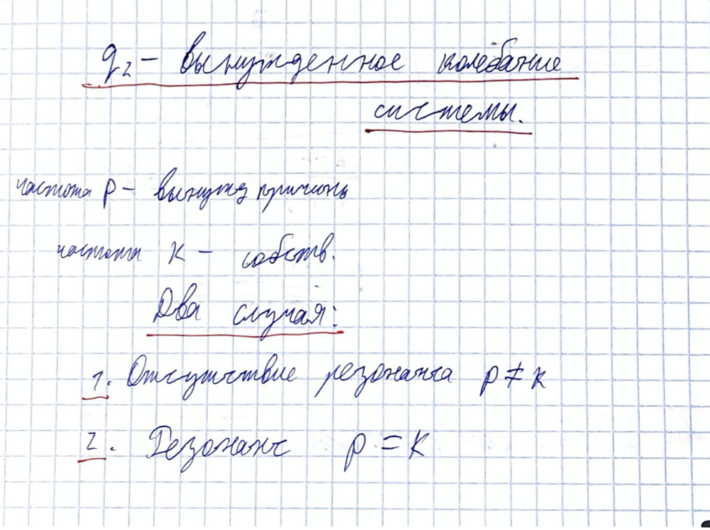 q₂ – вынужденное колебание
системы.
частота p – вынужд причины
частота k – собств.
Два случая:
1. Отсутствие резонанса p ≠ k
2. Резонанс p = k